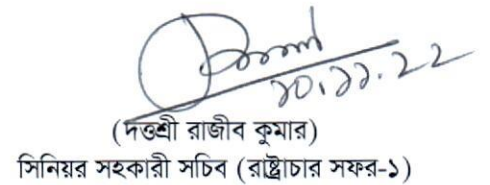 ১০.১১.২২
(দত্তশ্রী রাজীব কুমার)
সিনিয়র সহকারী সচিব (রাষ্ট্রাচার সফর-১)